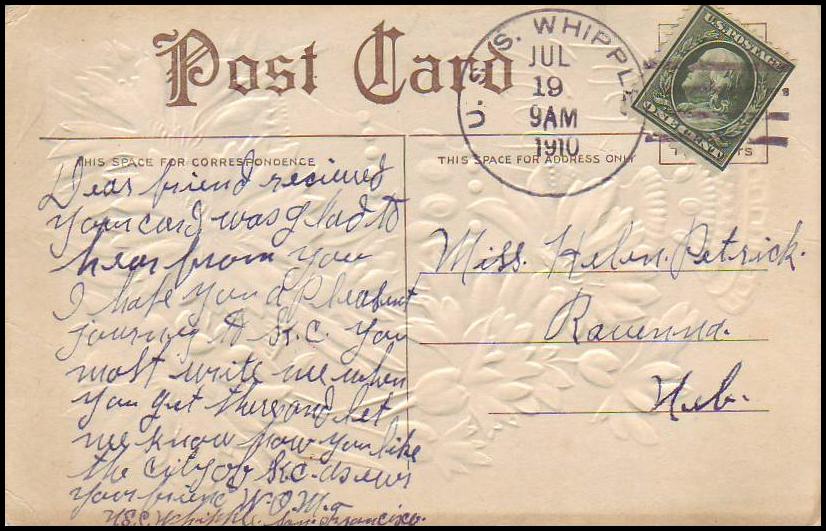 Post Card
U.S.S. WHIPPLE
JUL
19
9AM
1910
U.S. POSTAGE
ONE CENT
THIS SPACE FOR CORRESPONDENCE
THIS SPACE FOR ADDRESS ONLY
Dear friend recieved
your card was glad to
hear from you
I hope you a pleasent
journey to K.C. you
most write me when
you get there and let
me know how you like
the city of K.C. as ever
your friend W.O.M.
U.S.S. Whipple. San Francisco.
Miss. Helen. Petrick.
Ravenna.
Neb.